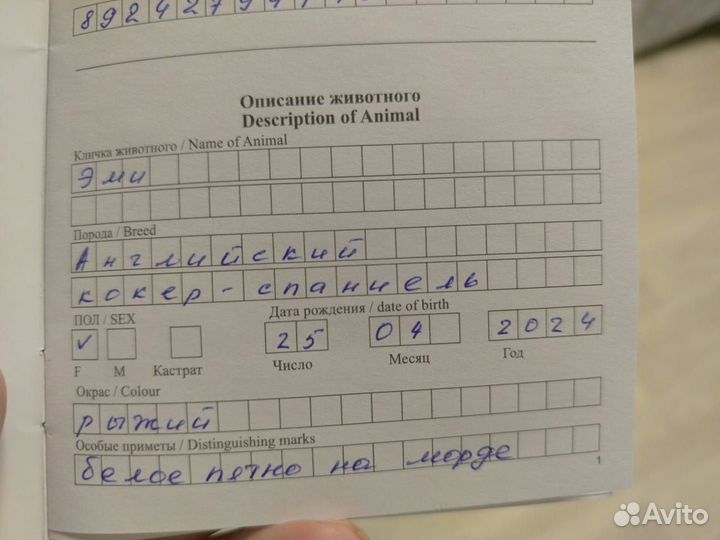 Описание животного
Description of Animal
Кличка животного / Name of Animal
Эми
Порода / Breed
Английский
кокер-спаниель
ПОЛ / SEX
Дата рождения / date of birth
✓ 25 04 2024
F M Кастрат Число Месяц Год
Окрас / Colour
рыжий
Особые приметы / Distinguishing marks
белое пятно на морде
1
Avito